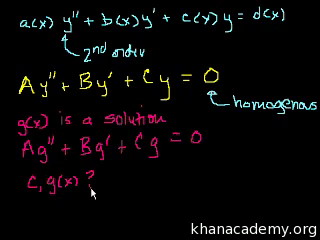 a(x) y" + b(x) y' + c(x) y = d(x)
2nd order
Ay" + By' + Cy = 0
homogenous
g(x) is a solution
Ag" + Bg' + Cg = 0
C₁ g(x) ?
khanacademy.org